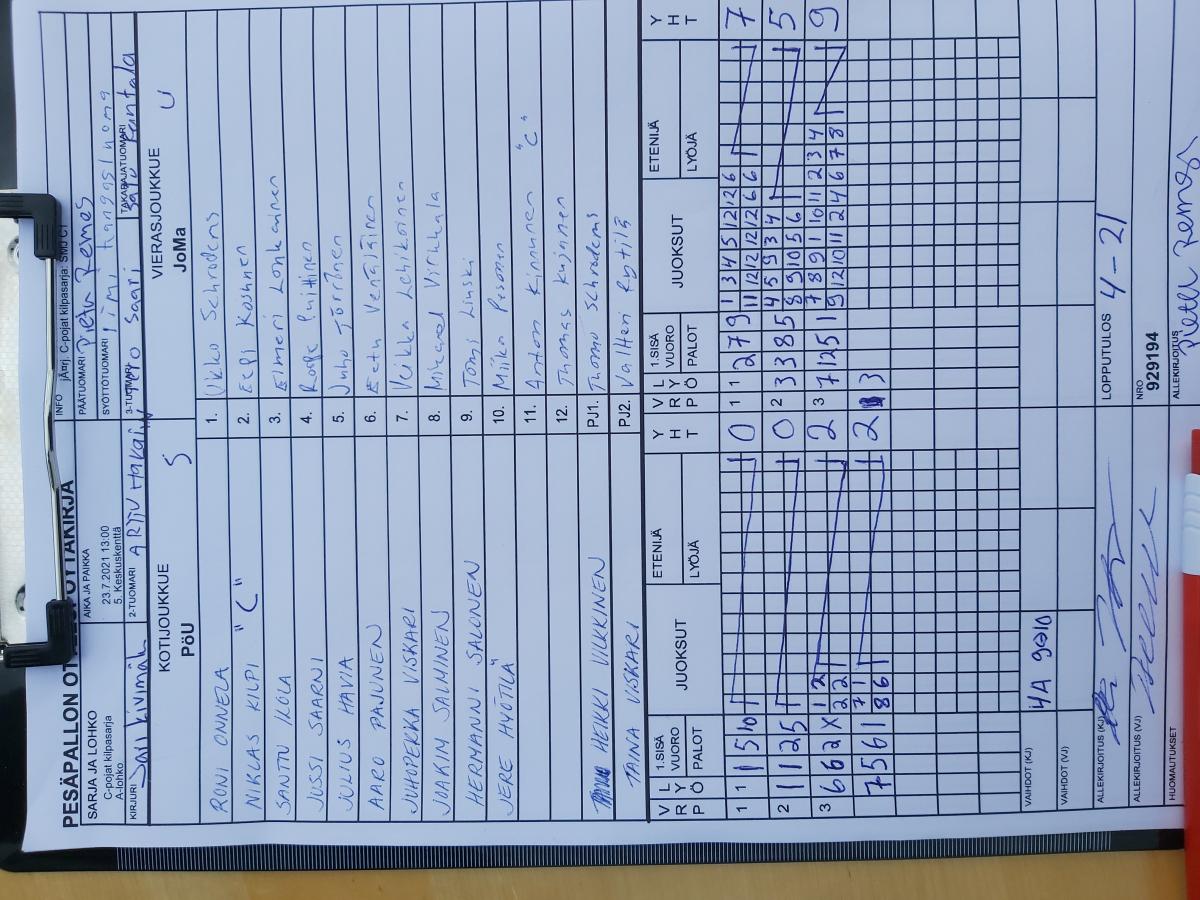 PESÄPALLON OTTELUPÖYTÄKIRJA
SARJA JA LOHKO
C-pojat kilpasarja
A-lohko
AIKA JA PAIKKA
23.7.2021 13:00
5. Keskuskenttä
INFO jÄrj. C-pojat kilpasarja: SMJ C1
PÄÄTUOMARI Pietu Remes
SYÖTTÖTUOMARI
KIRJURI Jari Kivimäki
2-TUOMARI
3-TUOMARI Tero Saari
TAKARAJATUOMARI
KOTIJOUKKUE S
PöU
VIERASJOUKKUE U
JoMa
RONI ONNELA 1. Ukko Schroderus
NIKLAS KILPI "C" 2. Eeli Kosunen
SANTTU IKOLA 3. Elmeri Lonkainen
JUSSI SAARNI 4. Roope Puittinen
JULIUS HAVIA 5. Juho Törrönen
AARO PAJUNEN 6. Eetu Venäläinen
JUHOPEKKA VISKARI 7. Veikka Lehikoinen
JOAKIM SALMINEN 8. Mikael Virkkala
HERMANNI SALONEN 9. Tomi Linska
JERE HYÖTILÄ 10. Miika Pesonen
11. Anton Kinnunen "C"
12. Thomas Kujanen
HEIKKI VILKKINEN PJ1. Thomo Schroderus
TAINA VISKARI PJ2. Valtteri Rytilä
V R P L Y Ö 1.SISÄ VUORO PALOT JUOKSUT ETENIJÄ LYÖJÄ Y H T V R P L Y Ö 1.SISÄ VUORO PALOT JUOKSUT ETENIJÄ LYÖJÄ Y H T
1 1 1 5 10 0 1 1 2 7 9 1 3 4 5 12 12 6 7
11 12 12 12 6 6 1
2 1 1 2 5 0 2 3 3 8 5 4 5 9 3 4 5
8 9 10 5 6 1
3 6 6 2 X 1 2 2 3 7 12 5 1 7 8 9 1 10 11 2 3 4 9
2 2 1 9 12 10 11 2 4 6 7 8 1
7 5 6 1 7 1 2 3
8 6 1
VAIHDOT (KJ) 4A 9→10
VAIHDOT (VJ)
ALLEKIRJOITUS (KJ) LOPPUTULOS 4-21
ALLEKIRJOITUS (VJ) NRO
929194
HUOMAUTUKSET ALLEKIRJOITUS
Pietu Remes